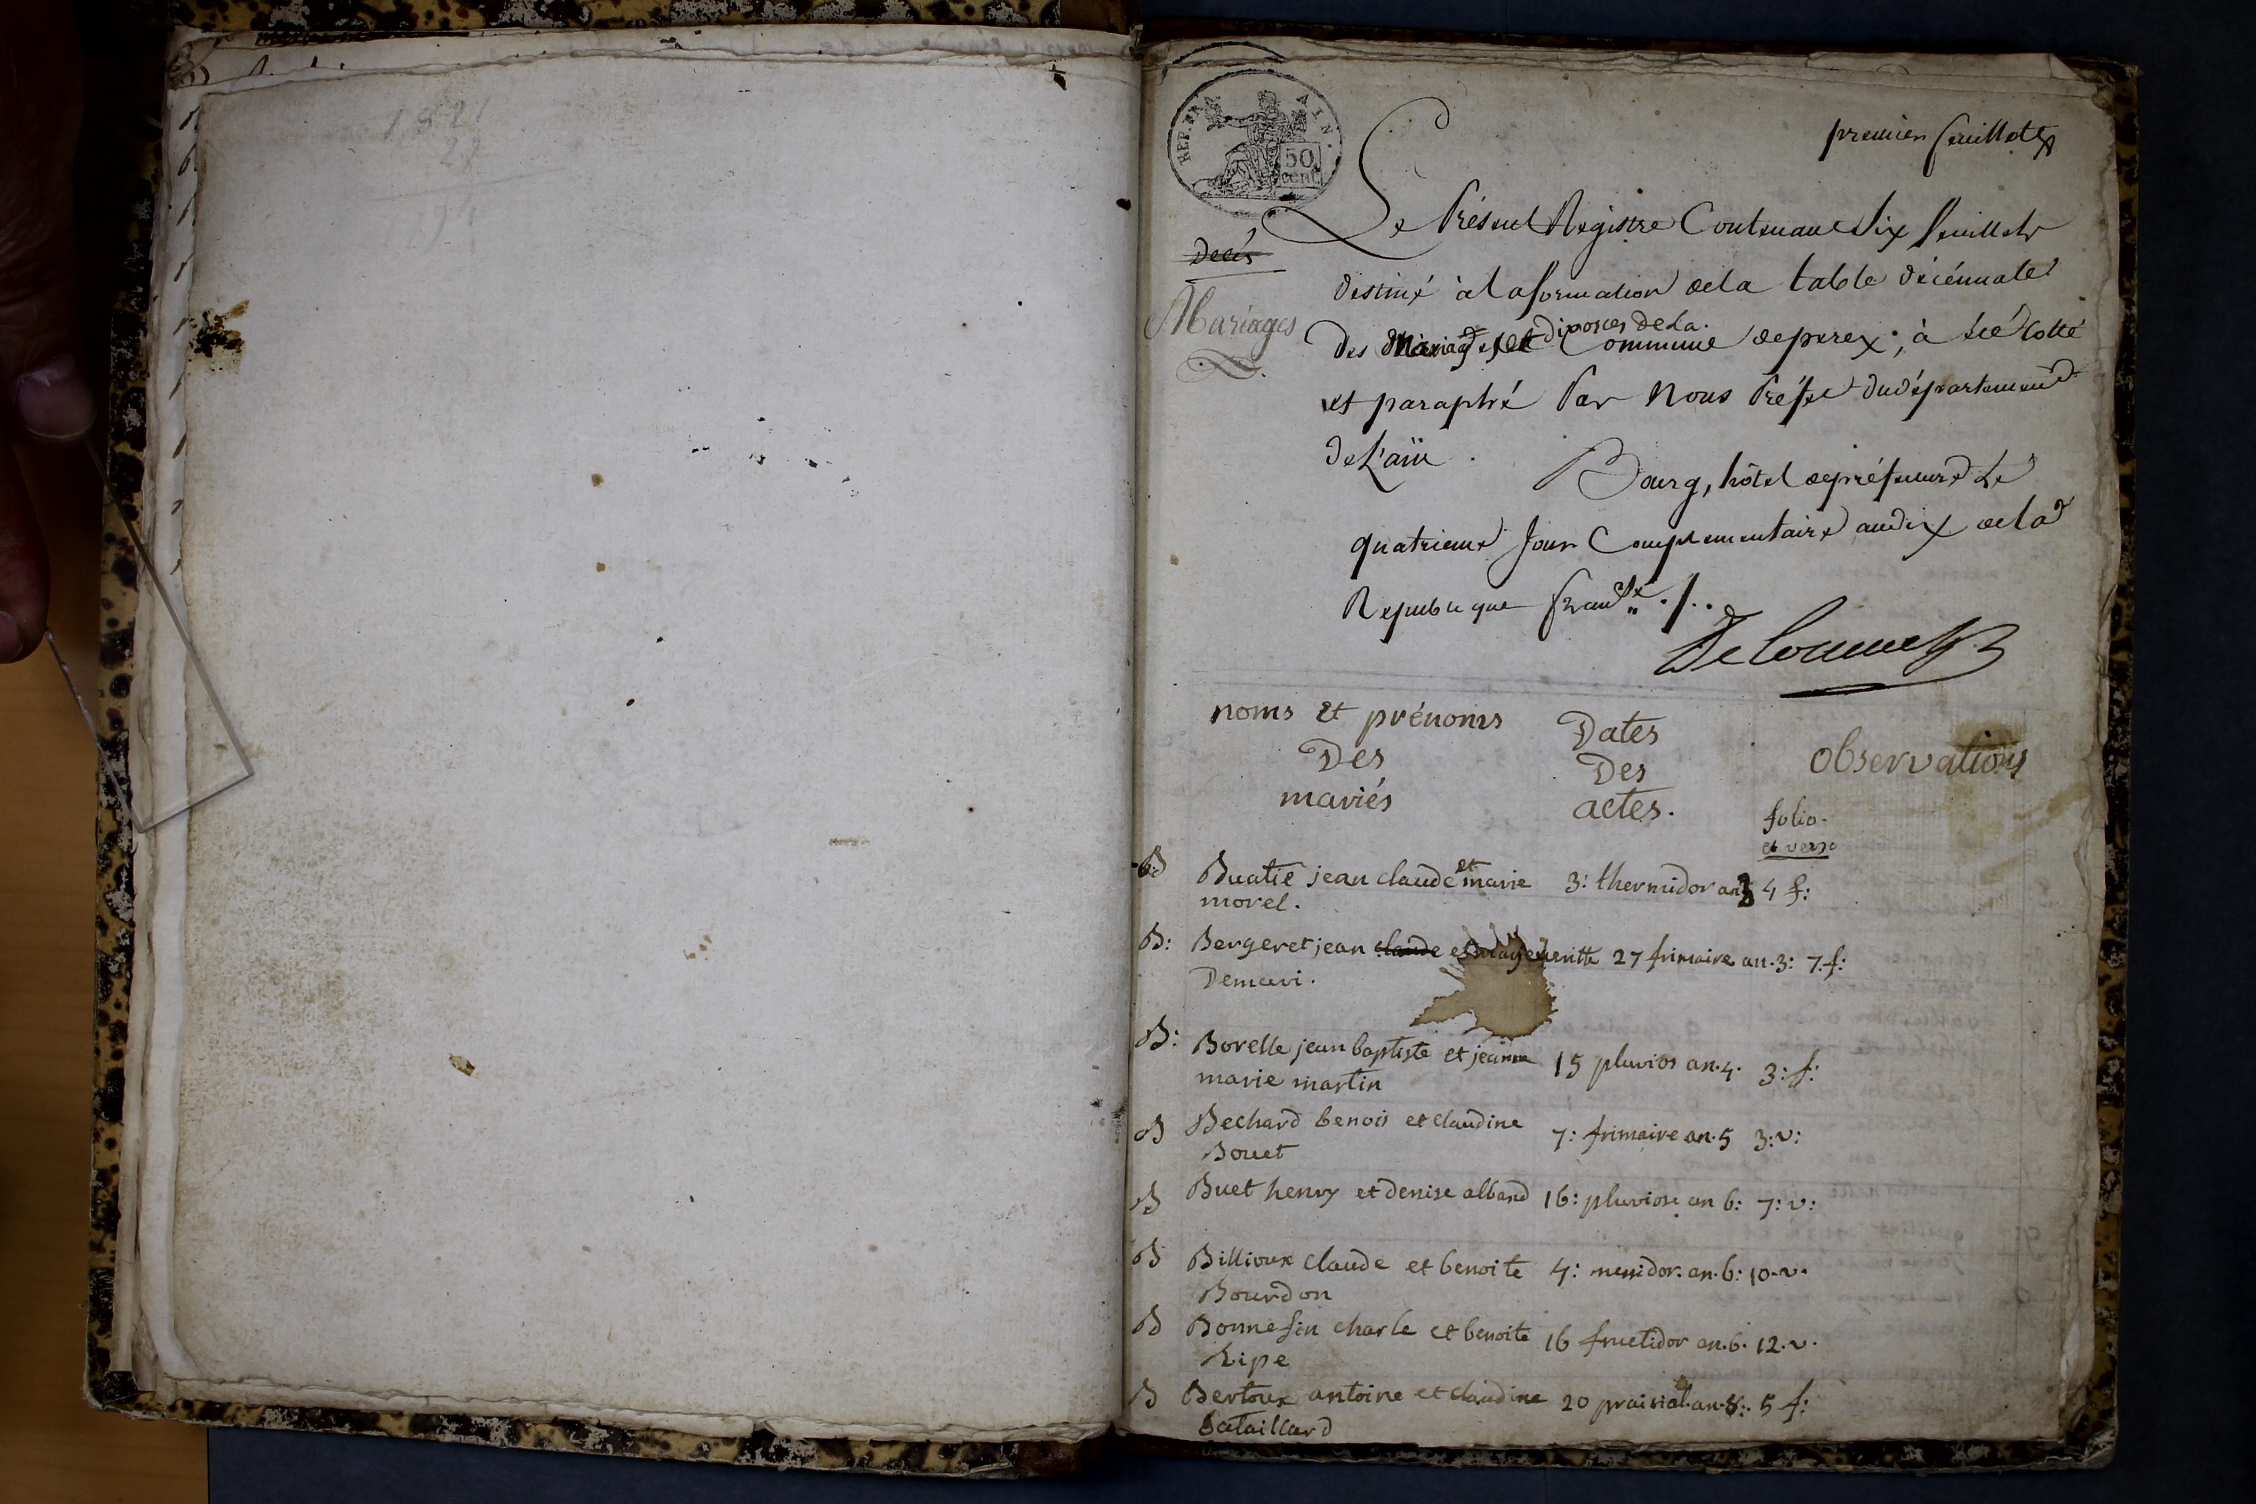 1821
premier feuillet
REP. FRA
50
cent.
Le Présent Registre Contenant Six feuillets
décès
destiné à la formation de la table décénnale
Mariages
des Mariages et divorces de la Commune de perex, à été Cotté
et paraphé Par Nous Préfet du département
de L'ain.
Bourg, hôtel de préfecture Le
quatrieme Jour Complementaire an dix de la
Republique franc.se ./..
noms et prénoms
Des
mariés
Dates
Des
actes.
observations
folio.
et verso
B Buatié jean claude et marie 3: thermidor an 3 4 f:
morel.
B: Bergeret jean claude et 27 frimaire an.3: 7.f:
B: Borelle jean baptiste et jeanne 15 pluvios an.4. 3: f:
marie martin
B Bechard benois et claudine 7: frimaire an.5 3:v:
Bouet
B Buet henry et denise alband 16: pluviose an 6: 7: v:
B Billioux claude et benoite 4: messidor. an.6: 10.v.
Bourdon
B Bonnefin charle et benoite 16 fructidor an.6. 12.v.
Ripe
B Bertoux antoine et claudine 20 prairial.an.8: 5 f:
Bataillard